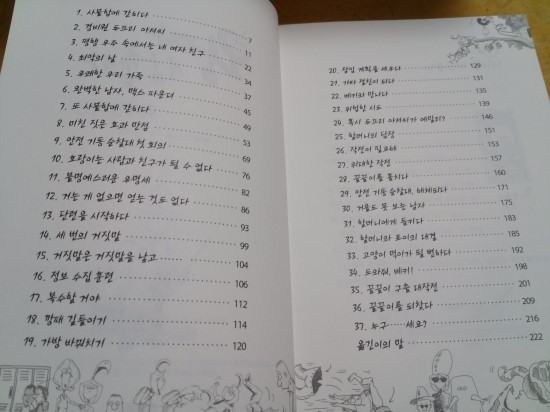 1. 사물함에 갇히다 7
2. 경비원 듀프리 아저씨 11
3. 평행 우주 속에서는 내 여자 친구 22
4. 최악의 날 34
5. 유쾌한 우리 가족 37
6. 완벽한 남자, 맥스 파운더 45
7. 또 사물함에 갇히다 49
8. 미친 짓은 효과 만점 53
9. 안전 기동 순찰대 첫 회의 69
10. 호랑이는 사람과 친구가 될 수 없다 76
11. 불명예스러운 유명세 82
12. 거는 게 없으면 얻는 것도 없다 86
13. 단련을 시작하다 93
14. 세 번의 거짓말 99
15. 거짓말은 거짓말을 낳고…… 104
16. 정보 수집 훈련 106
17. 복수할 거야 112
18. 깡패 길들이기 114
19. 가방 바꿔치기 120
20. 잠입 계획을 세우다 129
21. 가짜 절친이 되다 131
22. 베키와 만나다 135
23. 위험한 시도 139
24. 혹시 듀프리 아저씨가 에밀리? 146
25. 할머니의 답장 151
26. 작전이 필요해 153
27. 위대한 작전 157
28. 꿀꿀이를 훔치다 160
29. 안전 기동 순찰대, 171
30. 거울도 못 보는 남자 175
31. 할머니에게 들키다 183
32. 할머니와 로이의 대결 185
33. 고양이 먹이가 될 뻔하다 194
34. 도와줘, 베키! 198
35. 꿀꿀이 구출 대작전 201
36. 꿀꿀이를 되찾다 209
37. 누구……세요? 216
옮긴이의 말 222